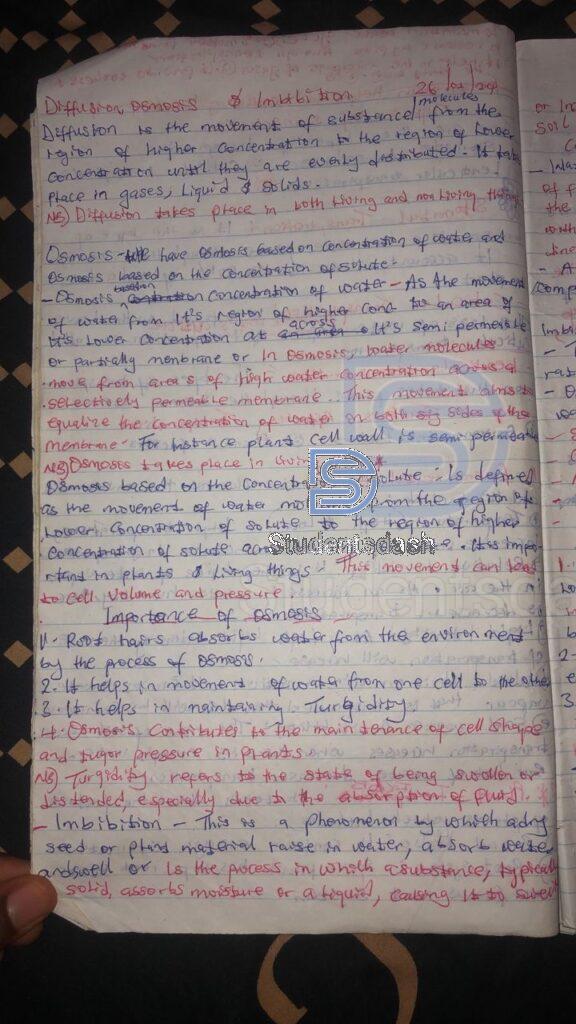 Diffusion Osmosis & Imbibition 26/
Diffusion is the movement of substance/molecules from the
region of higher concentration to the region of Lower
concentration until they are evenly distributed. It takes
place in gases, Liquid & solids.
NB) Diffusion takes place in both Living and non Living things
Osmosis - We have Osmosis based on concentration of water and
Osmosis based on the concentration of solute
- Osmosis based on concentration of water - As the movement
of water from It's region of higher conc to an area of
It's Lower concentration at across It's semi permeable
or partially membrane or In Osmosis, water molecules
move from areas of high water concentration across a
selectively permeable membrane. This movement aims to
equalize the concentration of water on both sides of the
membrane. For Instance plant cell wall is semi permeable
NB) Osmoses takes place in Living
Osmosis based on the Concentration solute: Is defined
as the movement of water mol from the region of
Lower concentration of solute to the region of higher
concentration of solute acro e. Its impor-
tant in plants & living things. This movement can lead
to cell volume and pressure
Importance of osmosis
1. Root hairs absorbs water from the environment
by the process of osmosis.
2. It helps in movement of water from one cell to the other
3. It helps in naintaining Turgidity
4. Osmosis contributes to the maintenance of cell shape
and tugor pressure in plants
NB) Turgidity refers to the state of being swollen or
distended, especially due to the absorption of fluid.
- Imbibition - This is a phenomenon by which a dry
seed or plant material raise in water, absorb water
and swell or Is the process in which a substance, typically
solid, assorbs moisture or a liquid, causing It to swell
Studentsdash
or In
soil
- Wat
of f
the
- A
Imbi
- T
rat
- O
1.
2-
3.